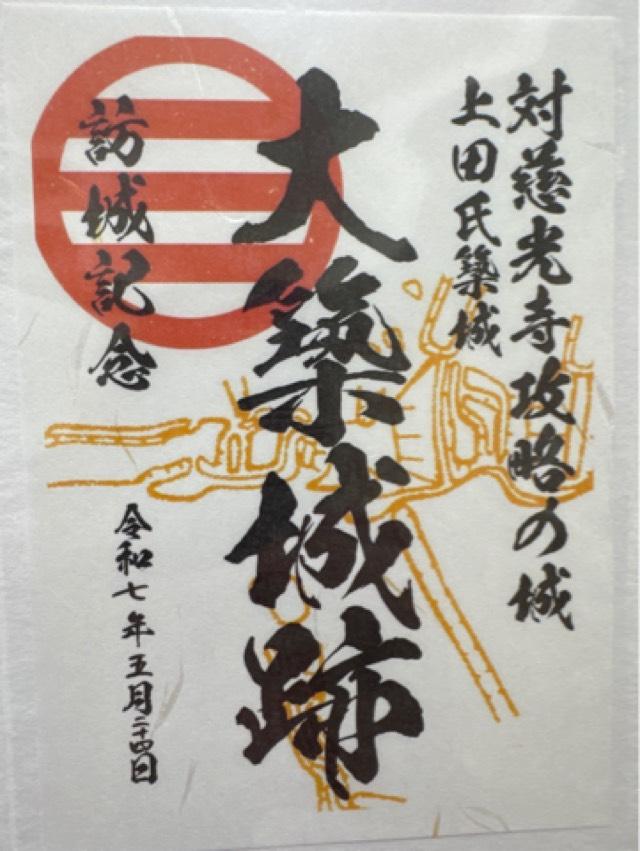 対慈光寺攻略の城
上田氏築城
大築城跡
訪城記念
令和七年五月二十四日